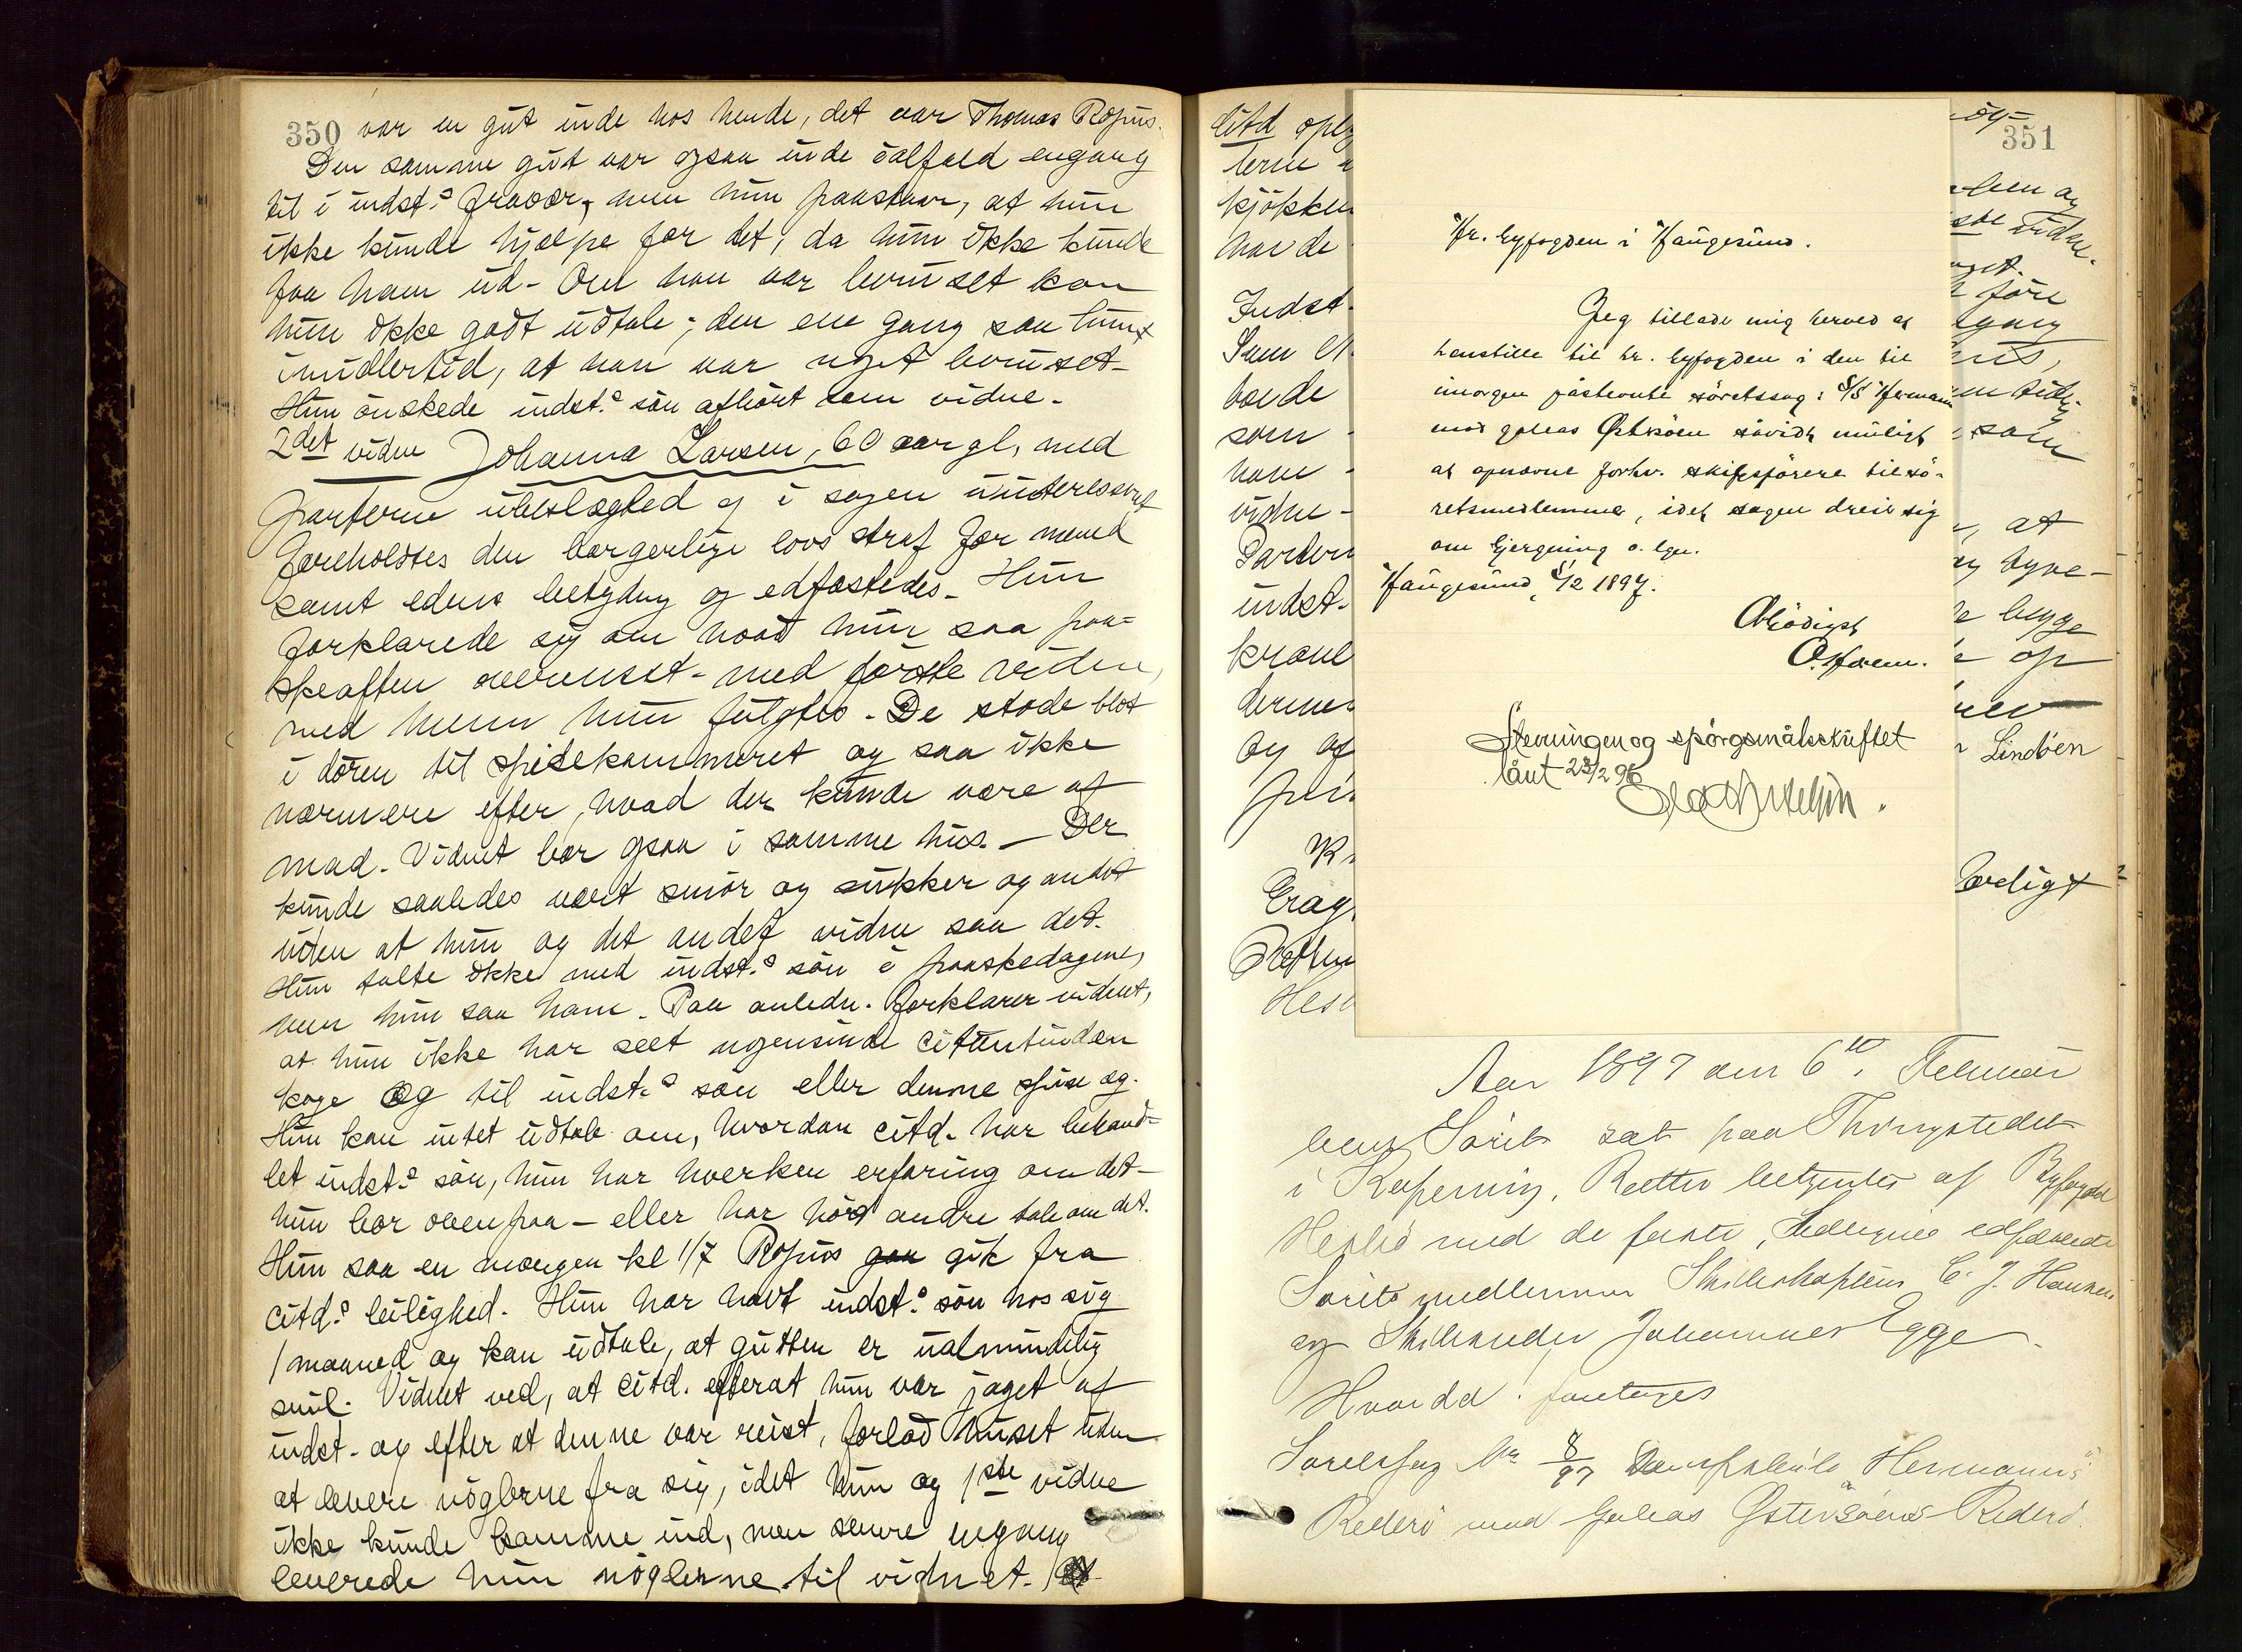 350 var en gut inde hos hende, det var Thomas Ropus.
Den samme gut var ogsaa inde ialfald engang
til i indst.s fravær, men hun paastaar, at hun
ikke kunde hjælpe for det, da hun ikke kunde
faa ham ud - Om han var beruset kan
hun ikke godt udtale; den ene gang saa hun
imidlertid, at han var noget beruset -
Hun önskede indst.s sön afhört som vidne.
2det vidne Johanna Larsen, 60 aar gl, med
parterne ubeslægted og i sagen uinteresseret
foreholdtes den borgerlige lovs straf for mened
samt edens betydng og edfæstedes. Hun
forklarede sig om hvad hun saa paa-
skeaften overensst. med förste vidne,
med hvem hun fulgtes. De stode blot
i dören til spisekammeret og saa ikke
nærmere efter, hvad der kunde være af
mad. Vidnet bor ogsaa i samme hus. - Der
kunde saaledes været smör og sukker og andet
uden at hun og det andet vidne saa det.
Hun talte ikke med indst.s sön i paaskedagene,
men hun saa ham. Paa anledn. forklarer vidnet,
at hun ikke har seet nogensinde citantinden
koge og til indst.s sön eller denne spise og.
Hun kan intet udtale om, hvordan citd. har behand-
let indst.s sön, hun har hverken erfaring om det -
hun bor ovenpaa - eller har hört andre tale om det.
Hun saa en morgen kl 1/7 Ropus gik fra
citd.s leilighed. Hun har havt indst.s sön hos sig
1 maaned og kan udtale, at gutten er ualmindelig
snil. Vidnet ved, at citd. efterat hun var jaget af
indst. og efter at denne var reist, forlod huset uden
at levere nöglerne fra sig, idet hun og 1ste vidne
ikke kunde komme ind, men senere engang
leverede hun nöglerne til vidnet.
351
Citd
kjökken
havde
Indst.
boede
som
ham
vidne
indst.
og
Hr. byfogden i Haugesund.
Jeg tillader mig herved at
henstille til hr. byfogden i den til
imorgen påstevnte söretssag: S/S Hermann
mod galeas Östsöen såvidt muligt
at opnævne forhv. skibsförere til sö-
retsmedlemmer, idet sagen dreier sig
om bjergning o. lgn.
Haugesund, 5/2 1897.
Ærbödigst
Stevningen og spörgsmålsskriftet
lånt 23/2 96
at
begge
op
Lindöen
færdigt
Aar 1897 den 6te Februar
blev Söret sat paa Thingstedet
i Kopervig, Retten betjentes af Byfoged
med de faste, edfæstede
Söretsmedlemmer Skibskaptein C. J. Hansen
og Skibsreder Johannes Egge
Hvorda! foretoges
Söretssag No 8/97 Dampskibet "Hermanns"
Rederi mod Galeas Östersöens Rederi.